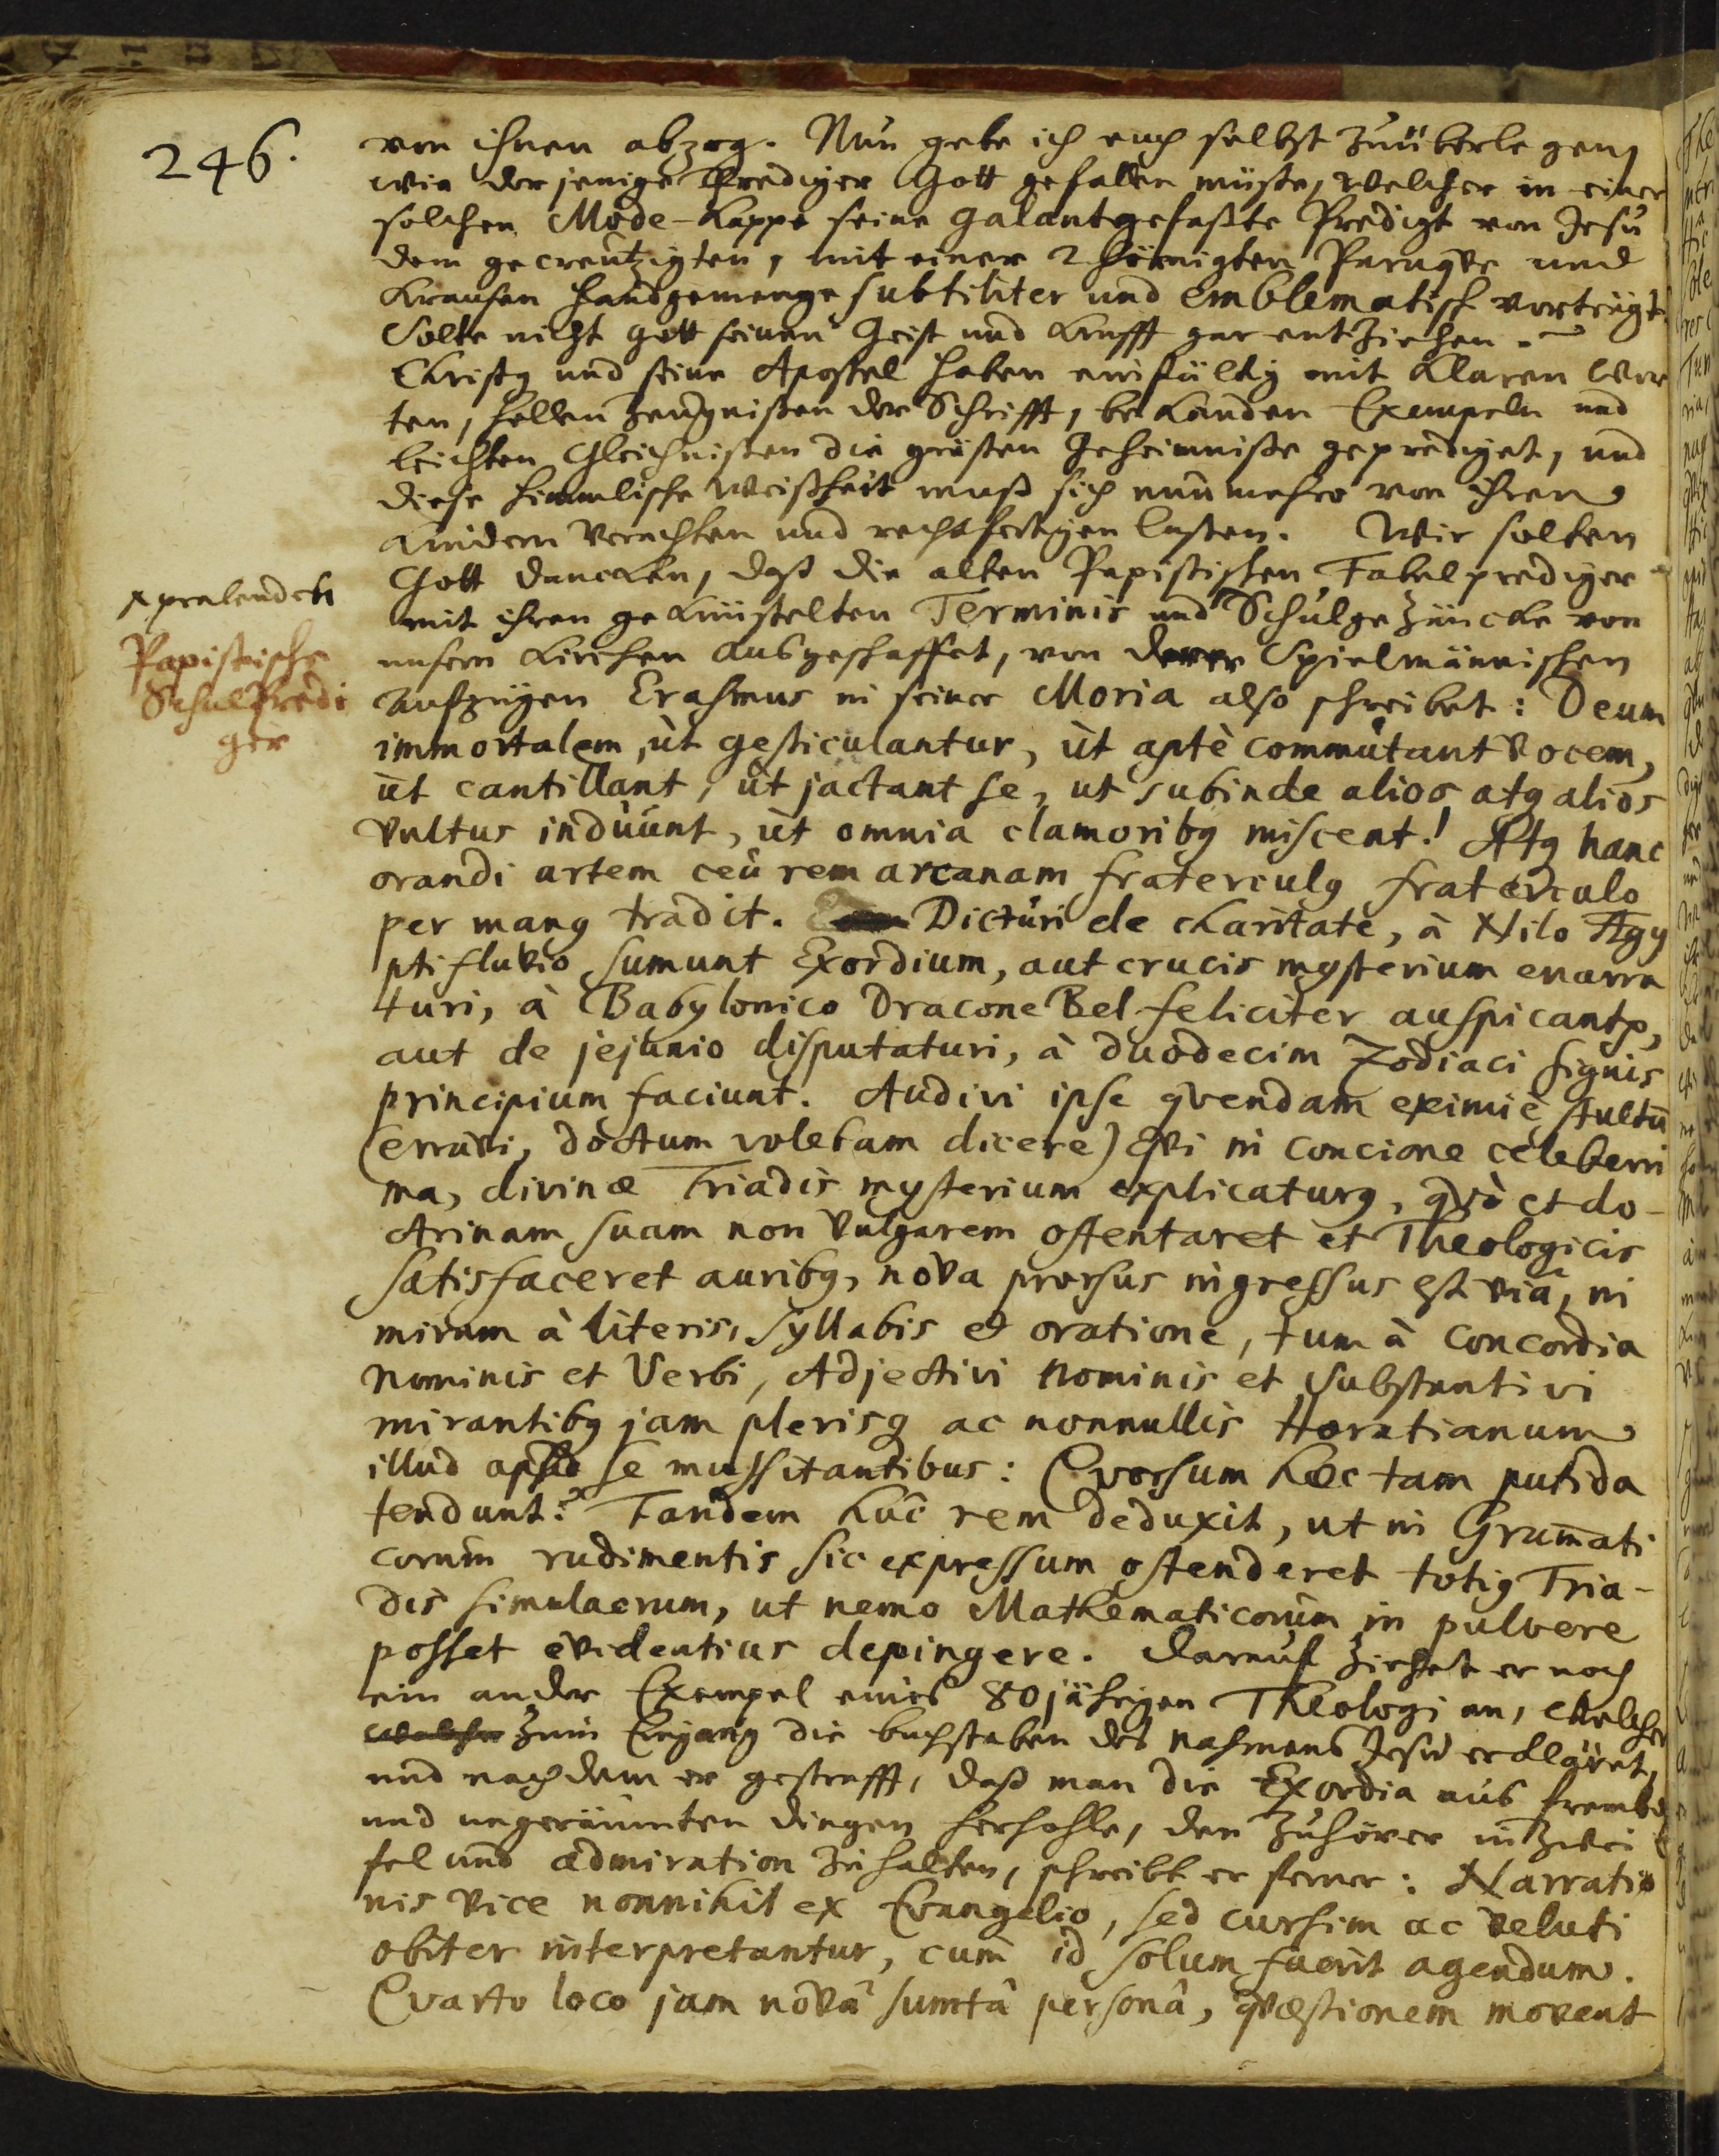 246.
von ihnen abzog. Nun gebe ich euch selbst zuüberlegen,
wie derjenige Prediger Gott gefallen müste, welcher in einer
solchen Mode-Kappe seine galantgefaßte Predigt von Jesu
dem gecreutzigten, mit einer 2 hörnigten Peruqve und
Krausen Handgemenge subtiliter und Emblematisch vorträgt.
Solte nicht gott seinen Geist und Krafft gar entziehen.
Christg und seine Apostel haben einfältig mit klaren Wor
ten, hellen Zeugnißen der Schrifft, bekanden Exempeln und
leichten Gleichnißen die grösten Geheimniße geprediget, und
diese himmlische Weißheit muß sich nunmehro von ihren
Kindern verachten und rechtfertigen laßen. Wir solten
Gott dancken, daß die alten Papistischen Fabelprediger
mit ihren gekünstelten Terminis und Schulgezäncke von
unsern Kirchen ausgeschaffet, von deren Spielmännischen
Papistische
Schulpredi
ger
Aufzügen Erasmus in seiner Moria also schreibet: Deum
immortalem, ùt gesticulantur, ùt aptè commutant vocem,
ùt cantillant, ùt jactant se, ut subinde alios atq alios
vultus induunt, ùt omnia clamoribg miscent! Atq hanc
orandi artem ceu rem arcanam fraterculg fraterculo
per mang tradit. Dicturi de charitate, à Nilo Ægy
pti fluvio sumunt Exordium, aut crucis mysterium enarra
turi, à Babylonico Dracone Bel feliciter auspicantr,
aut de jejunio disputaturi, à duodecim Zodiaci signis
principium faciunt. Audivi ipse qvendam eximiè stultũ
(erravi, doctum volebam dicere) Qvi in concione celeberri
ma, divinæ Triadis mysterium explicaturg, qvò et do-
ctrinam suam non vulgarem ostentaret et Theologicis
satisfaceret auribg, nova prorsus ingressus est viâ, ni
mirum à literis, syllabis et oratione, tum à concordia
nominis et Verbi, Adjectivi nominis et substantivi
mirantibg jam plerisq ac nonnullis Horatianum
illud apud se mussitantibus: Qvorsum hæc tam putida
tendunt? Tandem huc rem deduxit, ut in Gram̃ati
corum rudimentis sic expressum ostenderet totig Tria-
dis simulacrum, ut nemo Mathematicorum in pulvere
posset evidentius depingere. Darauf ziehet er noch
ein ander Exempel eines 80jährigen Theologi an, welcher
welcher zum Eingang die buchstaben des nahmens Jesu erkläret,
und nachdem er gestrafft, daß man die Exordia aus frembd
und ungeräumten dingen herhohle, den Zuhörer in Zwei
fel und admiration zu halten, schreibt er ferner: Narratio
nis vice nonnihil ex Evangelio, sed cursim ac veluti
obiter interpretantur, cum id solum fuerit agendum.
Qvarto loco jam novâ sumtâ personâ, qvæstionem movent